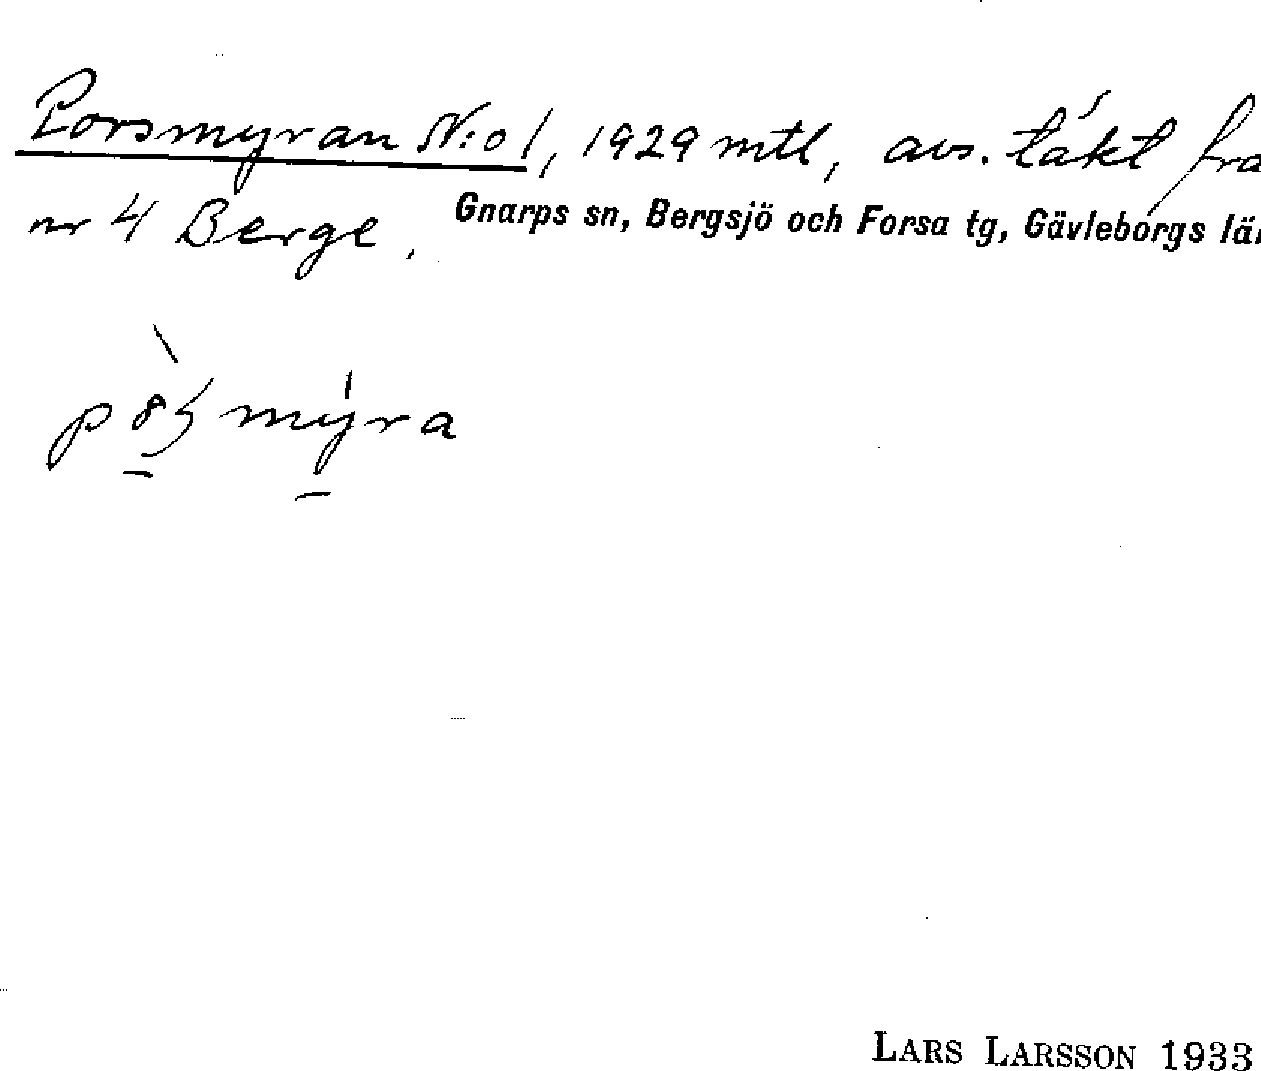 Porsmyran N:o 1, 1929 mtl, avs. täkt fra
nr 4 Berge.
Gnarps sn, Bergsjö och Forsa tg, Gävleborgs lä
myra
LARS LARSSON 1933